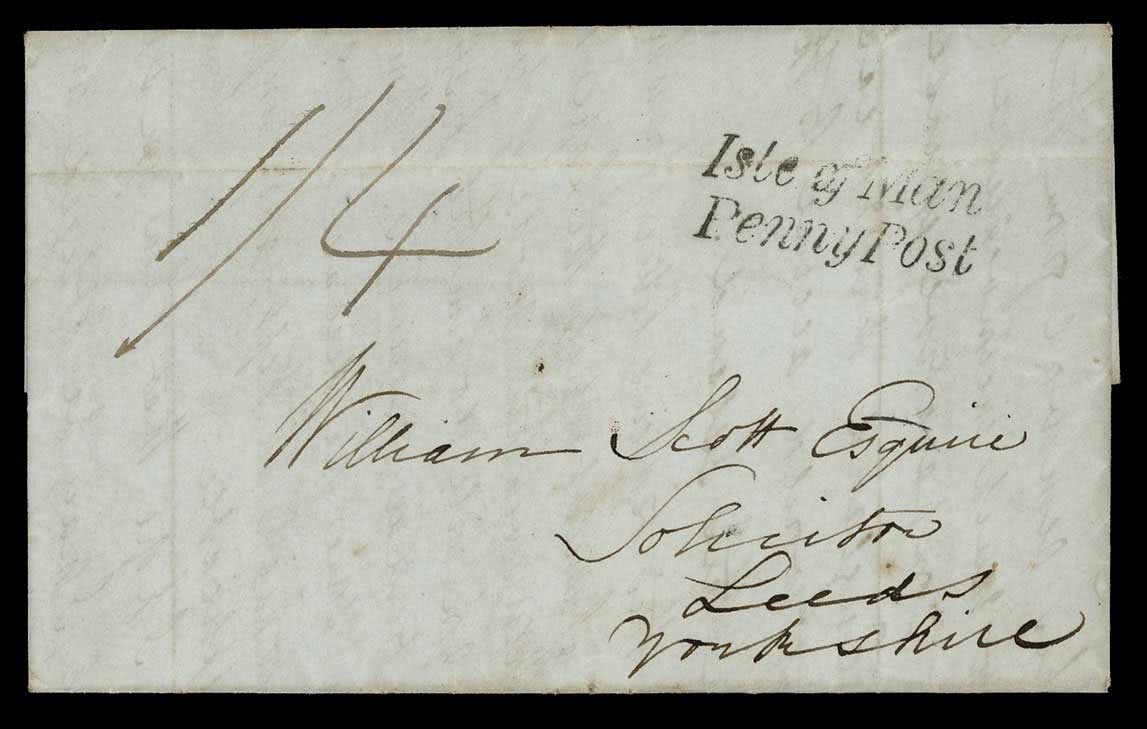 1/4
Isle of Man
Penny Post
William Scott Esquire
Solicitor
Leeds
Yorkshire